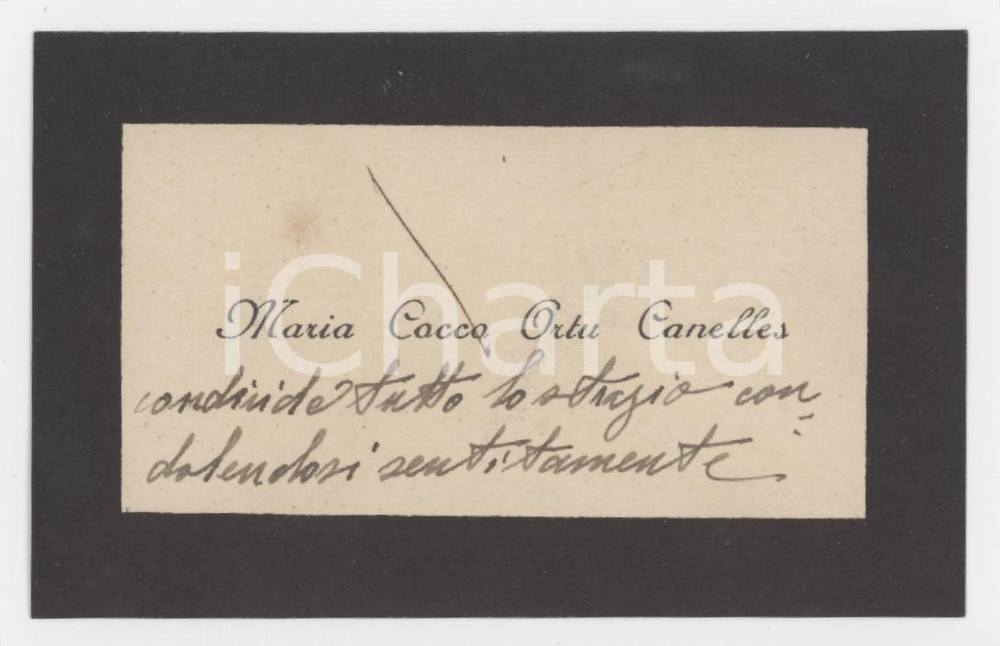 iCharta
Maria Cocco Ortu Canelles
condivide tutto lo strazio con-
dolendosi sentitamente